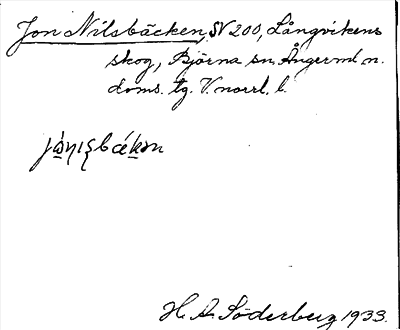 Jon Nilsbäcken, SV 200, Långvikens
skog, Björna sn. Ångerml. n.
doms. tg. V. norrl. l.
H. A. Söderberg 1933.